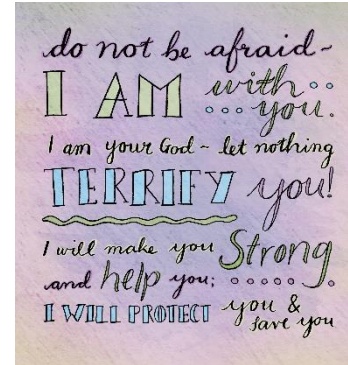 do not be afraid~
I AM with
you.
I am your God ~ let nothing
TERRIFY you!
I will make you Strong
and help you;
I WILL PROTECT you &
save you